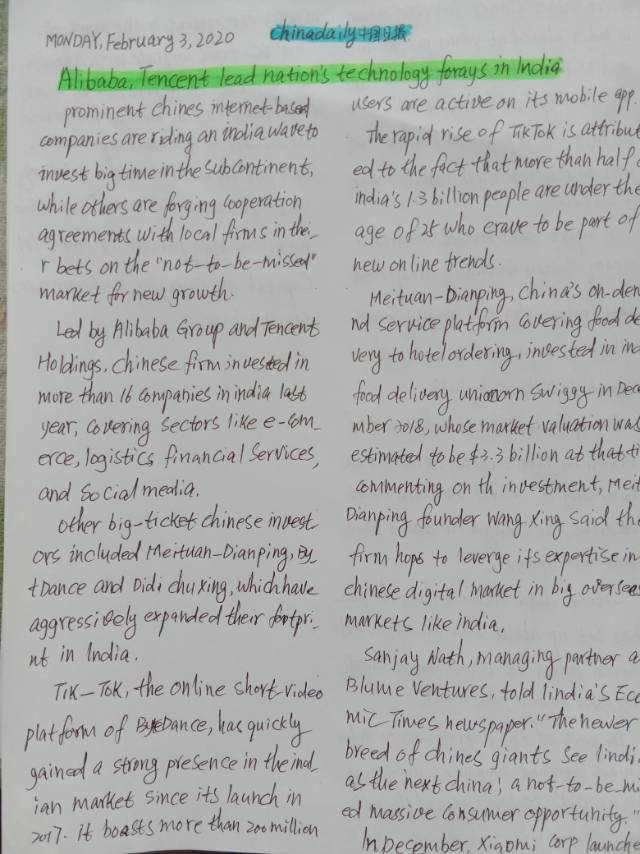 MONDAY, February 3, 2020 chinadaily中国日报
Alibaba, Tencent lead nation's technology forays in India
prominent chines internet-based
companies are riding an india wave to
invest big time in the subcontinent,
while others are forging cooperation
agreements with local firms in thei_
r bets on the "not-to-be-missed"
market for new growth.
Led by Alibaba Group and Tencent
Holdings, Chinese firm invested in
more than 16 companies in india last
year, covering sectors like e-com_
erce, logistics financial services,
and social media.
other big-ticket chinese invest_
ors included Meituan-Dianping, By
tDance and Didi chuxing, which have
aggressively expanded their footpri_
nt in India.
TiK-Tok, the online short video
platform of ByteDance, has quickly
gained a strong presence in the ind_
ian market since its launch in
2017. it boasts more than 200 million
users are active on its mobile app.
The rapid rise of TikTok is attribut
ed to the fact that more than half o
india's 1.3 billion people are under the
age of 25 who crave to be part of
new online trends.
Meituan-Dianping, China's on-den
nd service platform covering food de
very to hotel ordering, invested in ind
food delivery unionorn Swiggy in Dec
mber 2018, whose market valuation was
estimated to be $3.3 billion at that ti
commenting on th investment, Meit
Dianping founder Wang Xing said the
firm hops to leverge its expertise in
chinese digital market in big oversea
markets like india.
Sanjay Nath, managing partner a
Blume Ventures, told lindia's Eco
mic Times newspaper. "The newer
breed of chines giants see lindi
as the 'next china', a not-to-be-mi
ed massive consumer opportunity."
In December, Xiaomi Corp launche